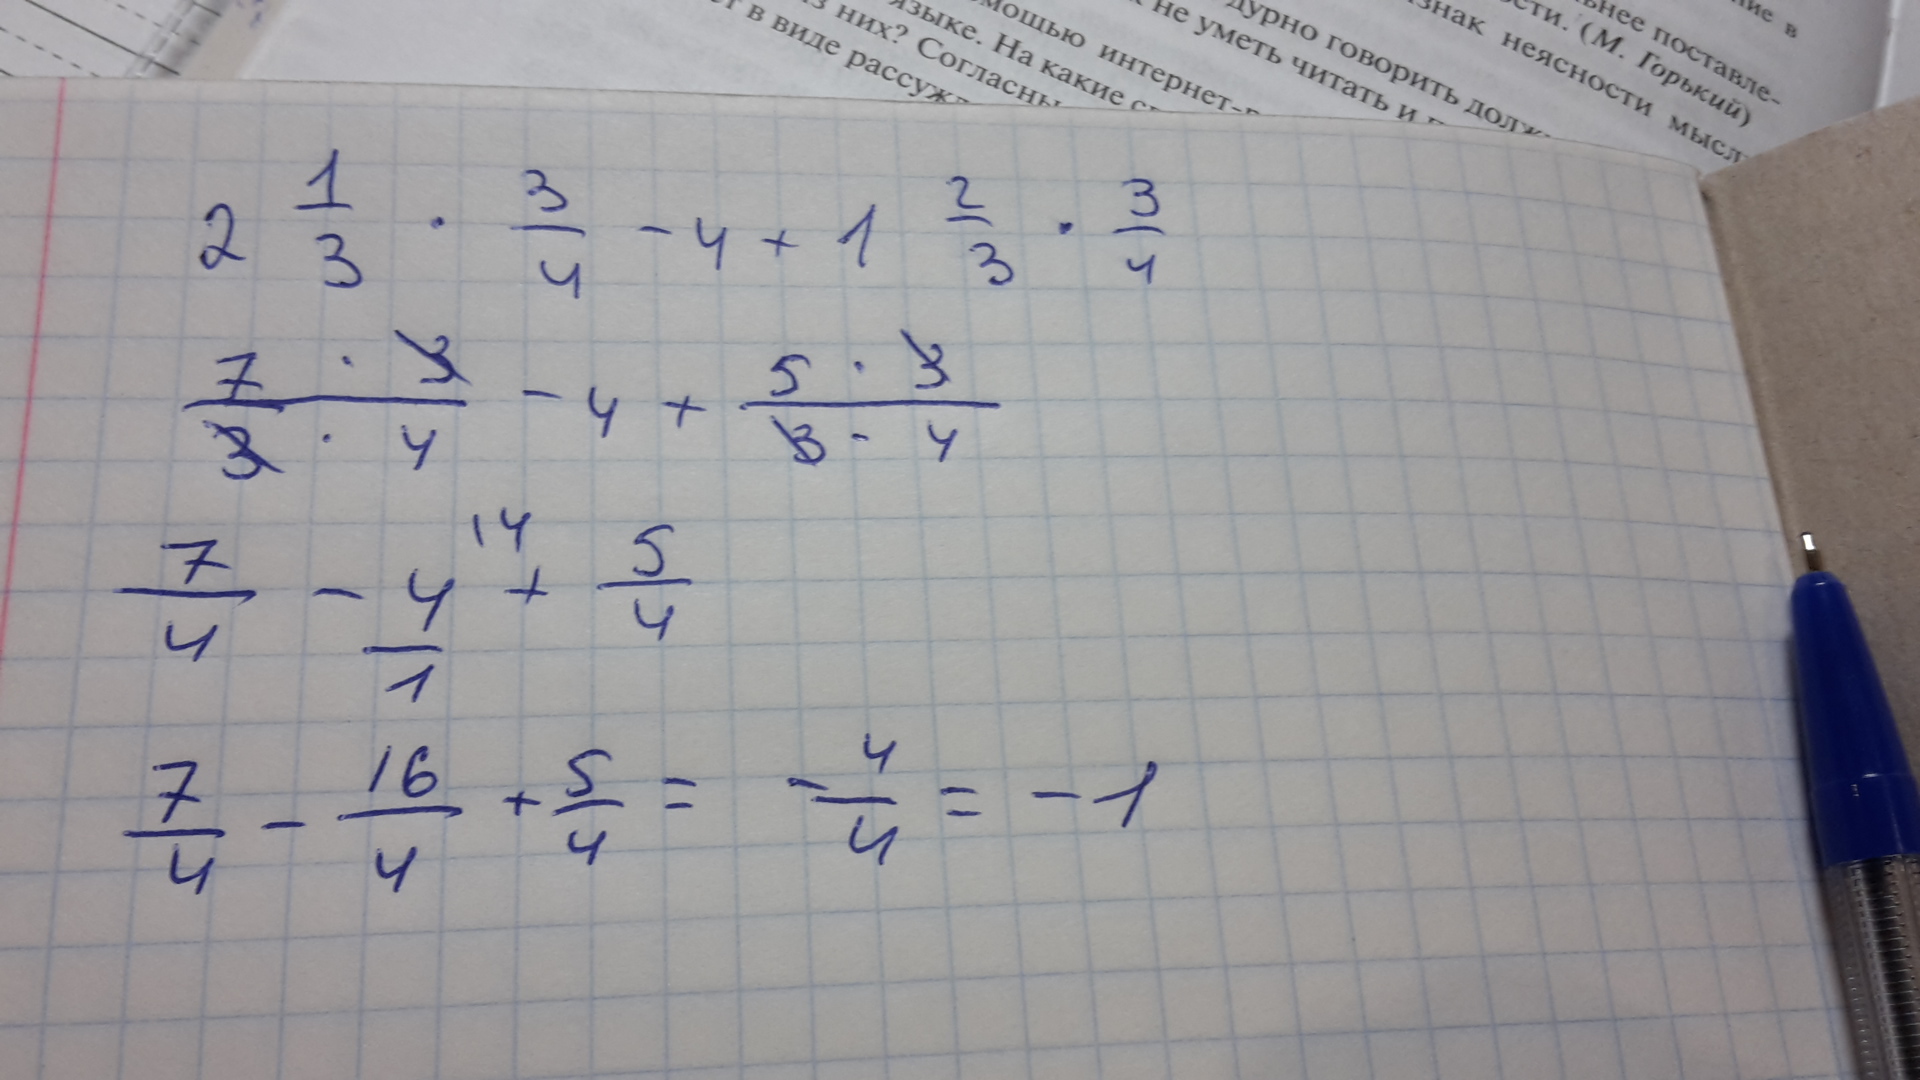 ние в
ьнее поставле-
сти. (М. Горький)
знак неясности мысл
дурно говорить долж
к не уметь читать и п
мощью интернет-р
языке. На какие с
из них? Согласны
ет в виде рассуж
2 1/3 · 3/4 - 4 + 1 2/3 · 3/4
7 · 3 / 3 · 4 - 4 + 5 · 3 / 3 · 4
7/4 - 4/1 14 + 5/4
7/4 - 16/4 + 5/4 = - 4/4 = - 1